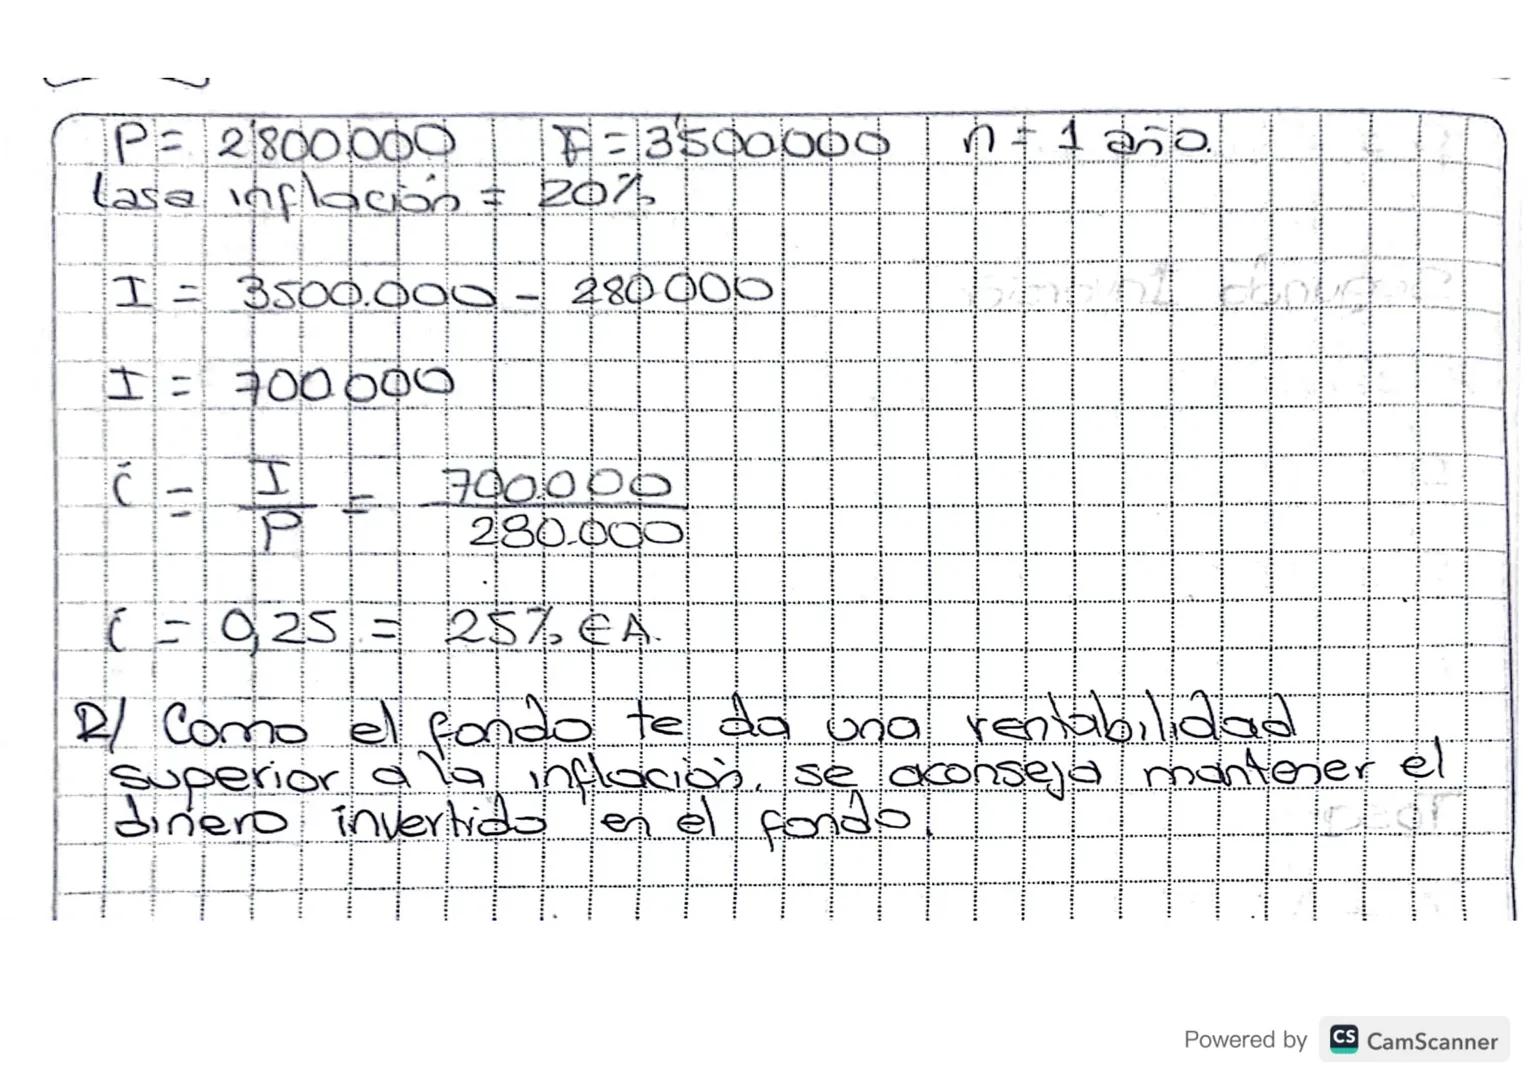 P = 2'800.000 F = 3'500.000 n = 1 año.
tasa inflación = 20%
I = 3500.000 - 280.000
I = 700.000
i = I/P = 700.000/280.000
i = 0,25 = 25% EA.
R/ Como el fondo te da una rentabilidad
superior a la inflación, se aconseja mantener el
dinero invertido en el fondo.
Powered by CS CamScanner